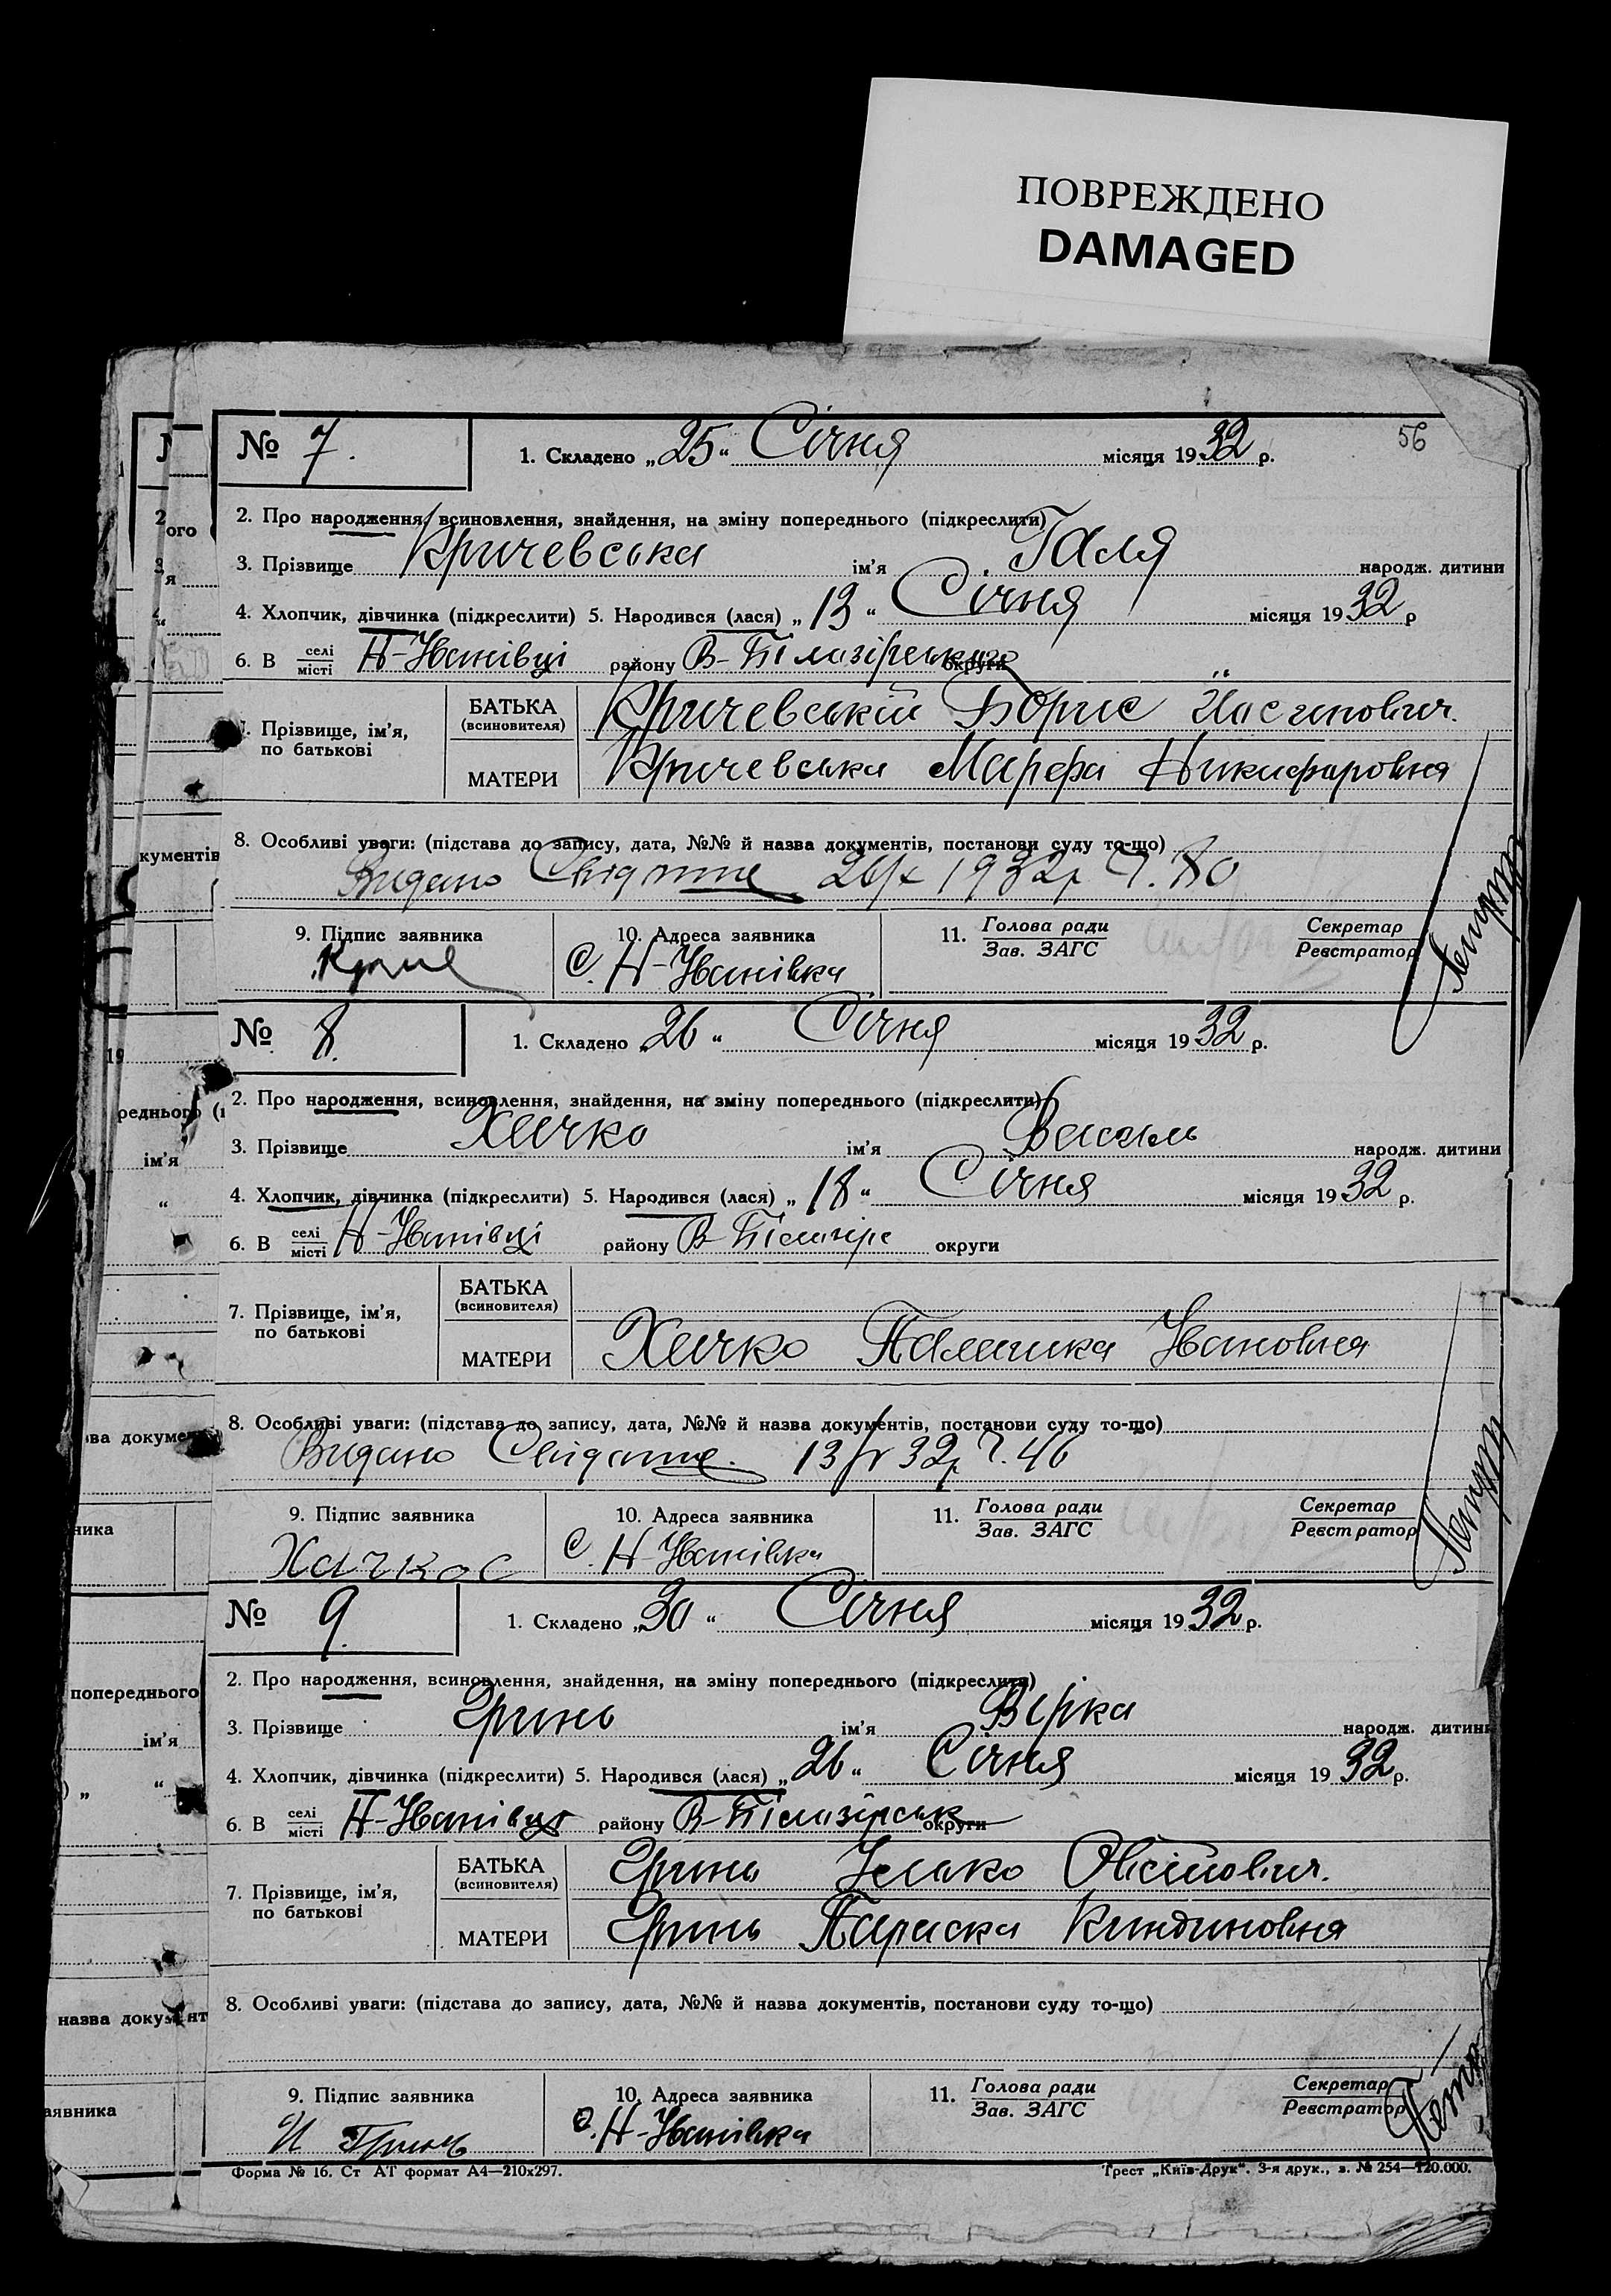 ПОВРЕЖДЕНО
DAMAGED
56
№ 7. 1. Складено „25“ Січня місяця 1932 р.
2. Про народження, всиновлення, знайдення, на зміну попереднього (підкреслити)
3. Прізвище Кричевська ім'я Галя народж. дитини
4. Хлопчик, дівчинка (підкреслити) 5. Народився (лася) „13“ Січня місяця 1932 р
6. В селі місті Н-Іванівці району В-Білозірського округи
7. Прізвище, ім'я, по батькові БАТЬКА (всиновителя) Кричевській Борис
МАТЕРИ Кричевська Марфа Никифаровня
8. Особливі уваги: (підстава до запису, дата, №№ й назва документів, постанови суду то-що)
Видано 1932р Ч. 80
9. Підпис заявника 10. Адреса заявника 11. Голова ради Зав. ЗАГС Секретар Реєстратор
С. Н-Іванівка
№ 8. 1. Складено „26“ Січня місяця 1932 р.
2. Про народження, всиновлення, знайдення, на зміну попереднього (підкреслити)
3. Прізвище Хачко ім'я Василь народж. дитини
4. Хлопчик, дівчинка (підкреслити) 5. Народився (лася) „18“ Січня місяця 1932 р.
6. В селі місті Н-Іванівці району В- округи
7. Прізвище, ім'я, по батькові БАТЬКА (всиновителя)
МАТЕРИ Хачко Палажка Івановня
8. Особливі уваги: (підстава до запису, дата, №№ й назва документів, постанови суду то-що)
Видано 32р Ч. 46
9. Підпис заявника 10. Адреса заявника 11. Голова ради Зав. ЗАГС Секретар Реєстратор
Хачко С. Н-Іванівка
№ 9. 1. Складено „30“ Січня місяця 1932 р.
2. Про народження, всиновлення, знайдення, на зміну попереднього (підкреслити)
3. Прізвище Гринь ім'я Вірка народж. дитини
4. Хлопчик, дівчинка (підкреслити) 5. Народився (лася) „26“ Січня місяця 1932 р.
6. В селі місті Н-Іванівці району В-Білозірськ округи
7. Прізвище, ім'я, по батькові БАТЬКА (всиновителя) Гринь
МАТЕРИ Гринь Параска Киндиновня
8. Особливі уваги: (підстава до запису, дата, №№ й назва документів, постанови суду то-що)
9. Підпис заявника 10. Адреса заявника 11. Голова ради Зав. ЗАГС Секретар Реєстратор
И Гринь С. Н-Іванівка
Форма № 16. Ст АТ формат А4—210х297. Трест „Київ-Друк“. 3-я друк., з. № 254—120.000.